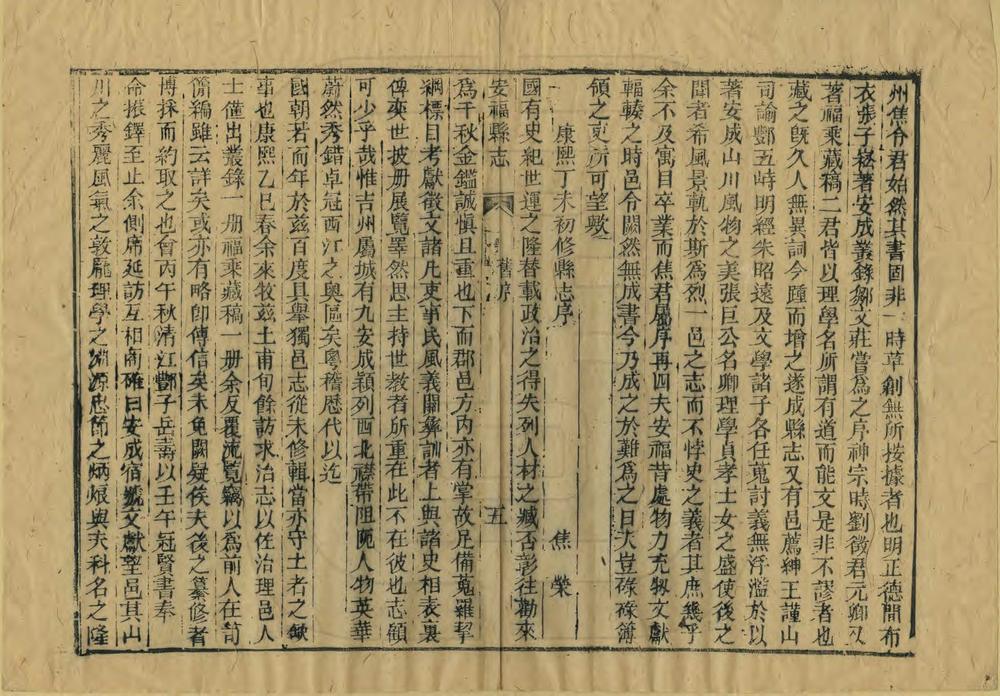 州焦令君始然其書固非一時草創無所按據者也明正德間布
衣張子崧著安成叢錄鄒文莊嘗為之序神宗時劉徵君元卿又
著福乘藏稿二君皆以理學名所謂有道而能文是非不謬者也
藏之旣久人無異詞今踵而增之遂成縣志又有邑薦紳王謹山
司諭酆五峙明經朱昭遠及文學諸子各任蒐討義無浮濫於以
著安成山川風物之美張巨公名卿理學貞孝士女之盛使後之
聞者希風景軌於斯為烈一邑之志而不悖史之義者其庶幾乎
余不及寓目卒業而焦君屬序再四夫安福昔處物力充牣文獻
輻輳之時邑令闕然無成書今乃成之於難為之日夫豈碌碌簿
領之吏所可望歟
康熙丁未初修縣志序 焦榮
國有史紀世運之隆替載政治之得失列人材之臧否彰往勸來
安福縣志 舊序 五
為千秋金鑑誠愼且重也下而郡邑方內亦有掌故足備蒐羅挈
綱標目考獻徵文諸凡吏事民風義關彝訓者上與諸史相表裏
俾奕世披册展覽睪然思主持世教者所重在此不在彼也志顧
可少乎哉惟吉州屬城有九安成穎列西北襟帶阻阨人物英華
蔚然秀錯卓冠西江之奧區矣粵稽歷代以迄
國朝若而年於茲百度具舉獨邑志從未修輯當亦守土者之缺
事也康熙乙巳春余來牧茲土甫旬餘訪求治志以佐治理邑人
士僅出叢錄一册福乘藏稿一册余反覆流覽竊以為前人在笥
簡編雖云詳矣或亦有略卽傳信矣未免闕疑俟夫後之纂修者
博採而約取之也會丙午秋清江酆子岳壽以壬午冠賢書奉
命振鐸至止余側席延訪互相商確曰安成宿號文獻望邑其山
川之秀麗風氣之敦龐理學之淵源忠節之炳烺與夫科名之隆